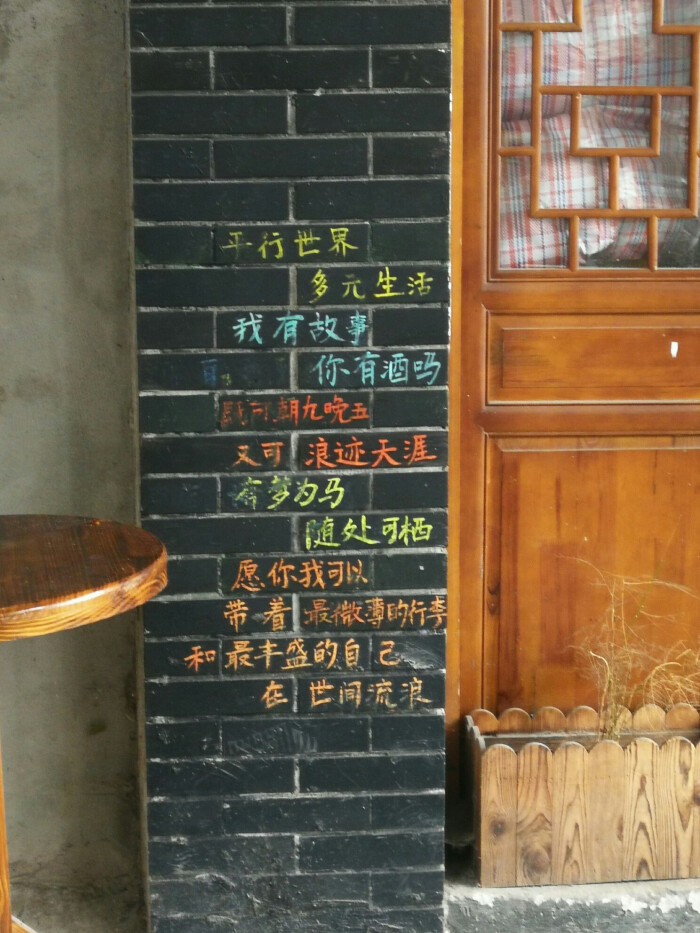 平行世界
多元生活
我有故事
你有酒吗
既可朝九晚五
又可浪迹天涯
有梦为马
随处可栖
愿你我可以
带着最微薄的行李
和最丰盛的自己
在世间流浪